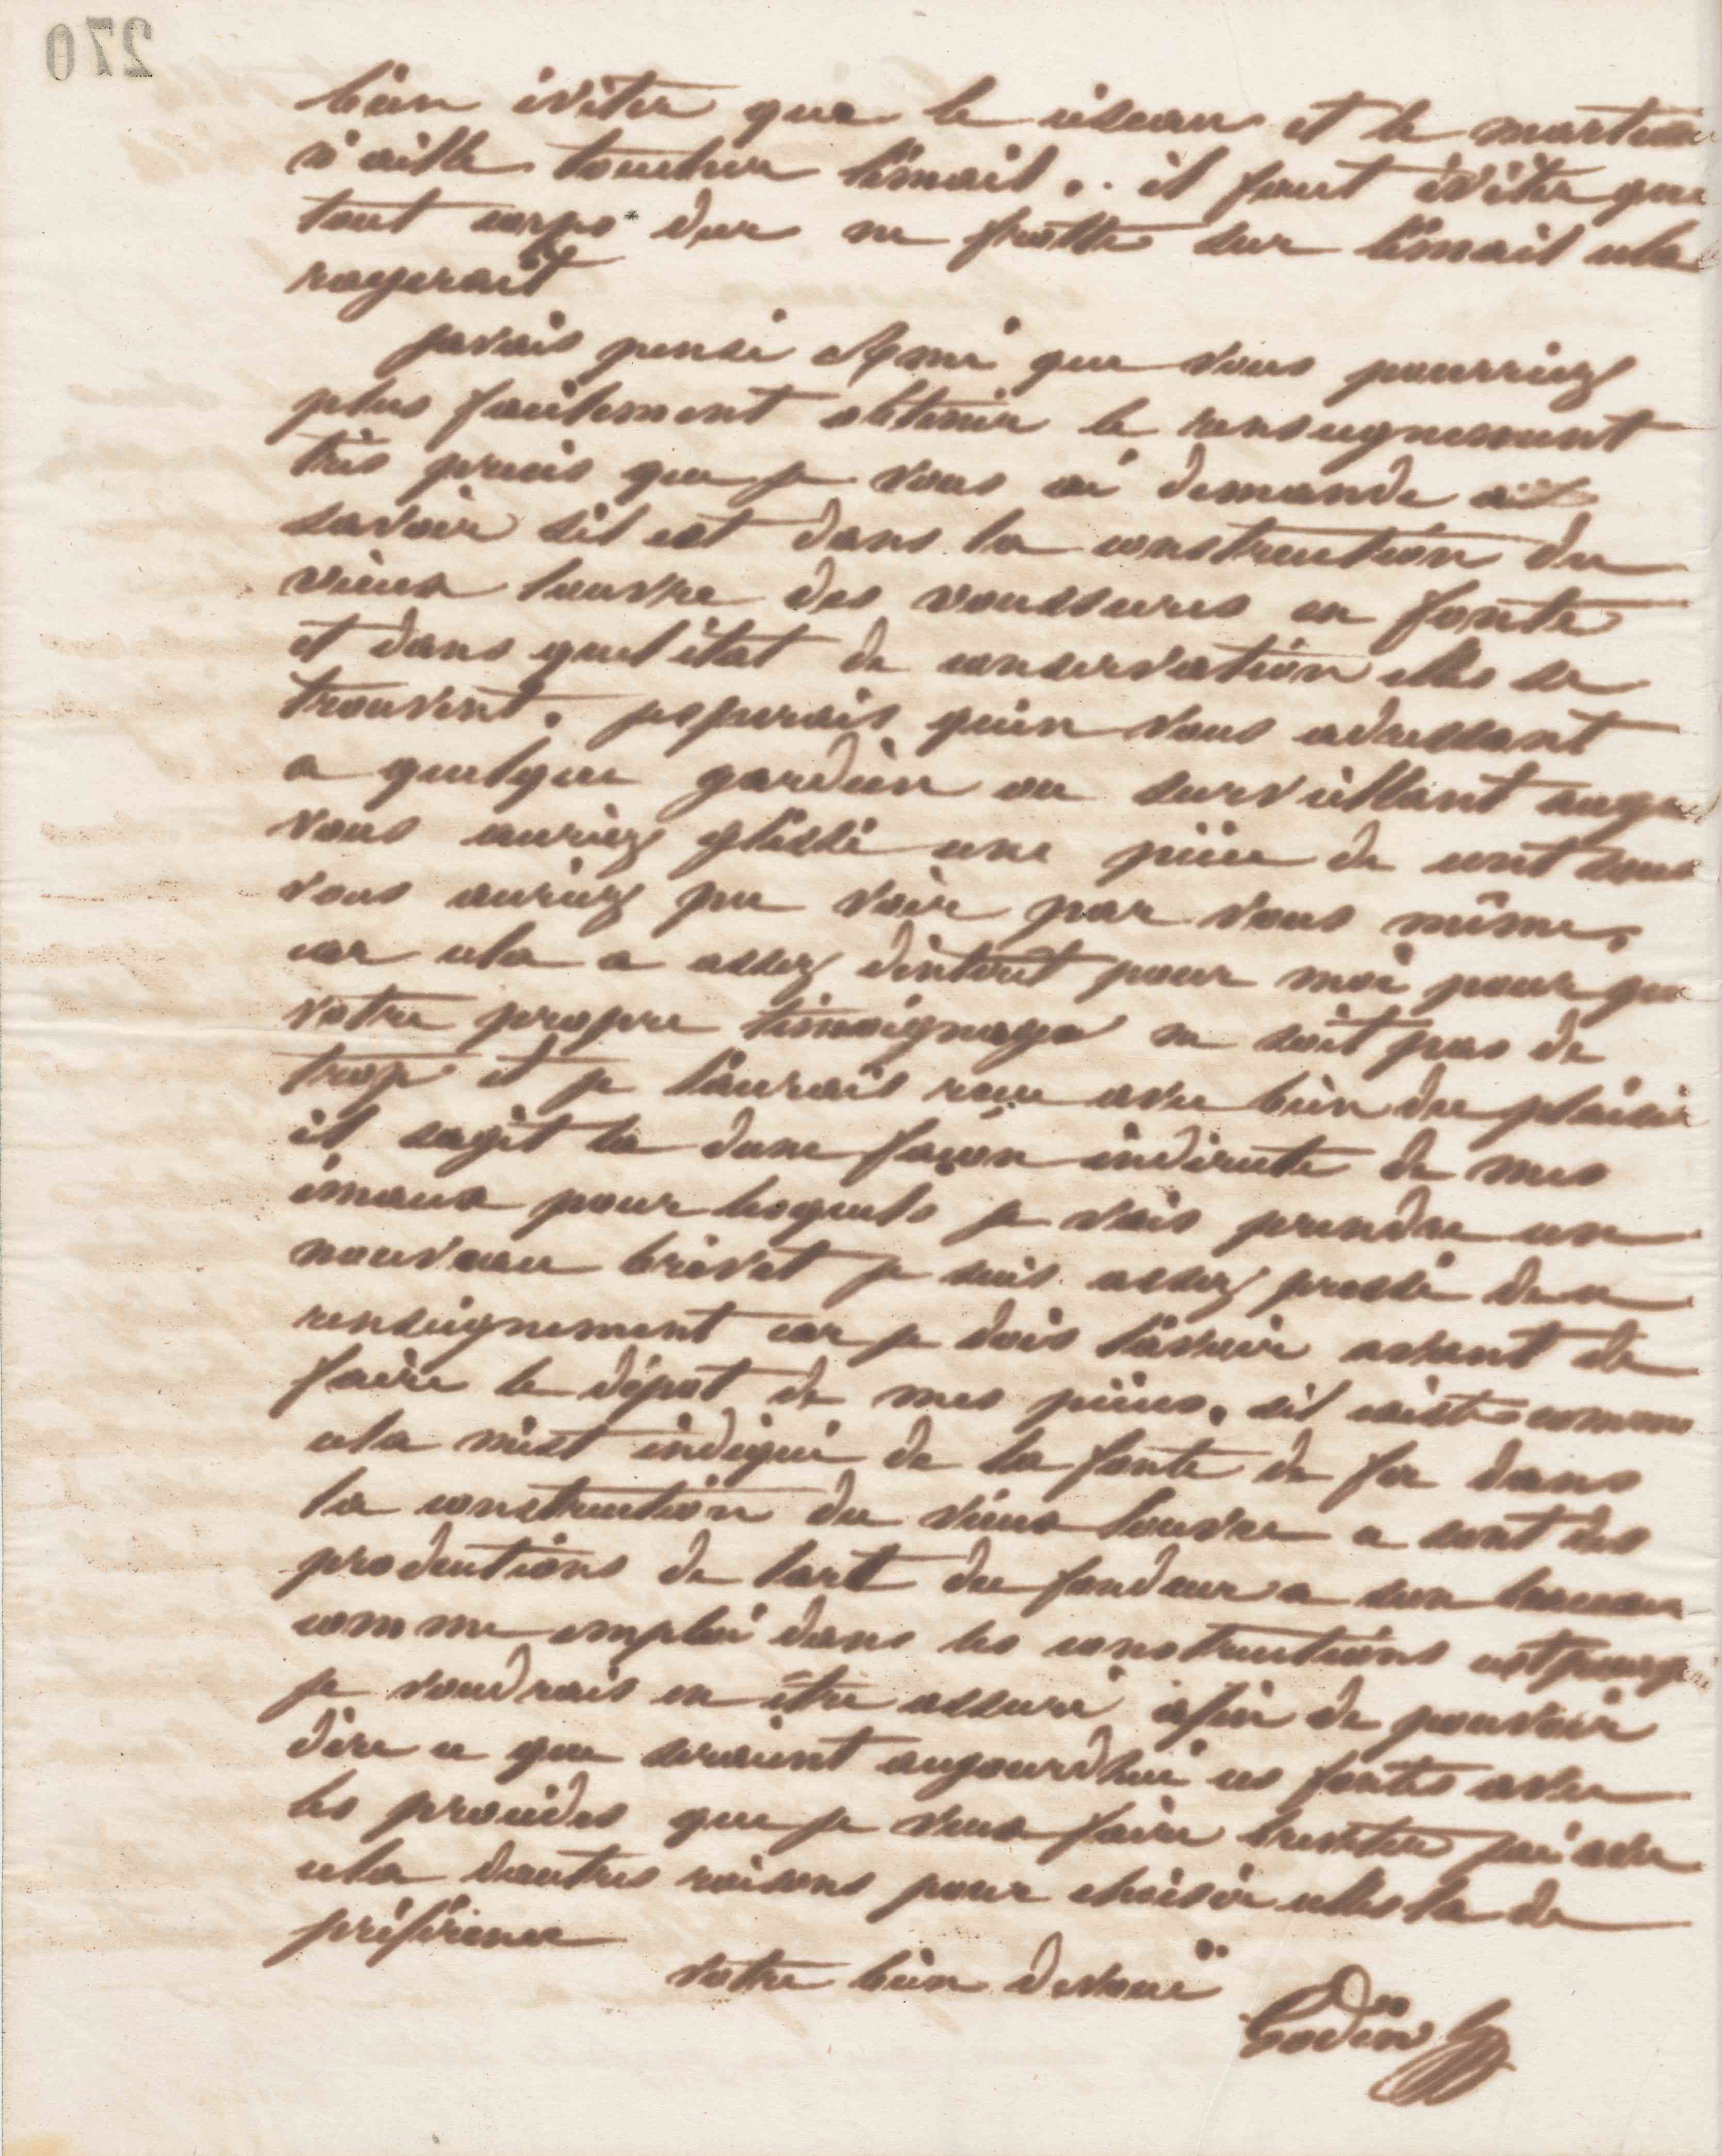 270
bien éviter que le ciseau et le marteau
n'aille toucher l'émail. il faut éviter que
tout corps dur ne frotte sur l'émail cela
rayerait
javais pensé Ami que vous pourriez
plus facilement obtenir le renseignement
très précis que je vous ai demandé
savoir sil est dans la construction du
vieux louvre des voussures en fonte
et dans quel état de conservation elles se
trouvent. jesperais quen vous adressant
a quelque gardien ou surveillant auquel
vous auriez glissé une pièce de cent sous
vous auriez pu voir par vous même,
car cela a assez dintéret pour moi pour que
votre propre témoignage ne soit pas de
trop et je laurais reçu avec bien du plaisir
il sagit la dune façon indirecte de mes
émaux pour lesquels je vais prendre un
nouveau brevet je suis assez pressé de ce
renseignement car je dois lavoir avant de
faire le dépot de mes pièces. sil existe comme
cela mest indiqué de la fonte de fer dans
la construction du vieux louvre ce sont des
productions de lart du fondeur a son berceau
comme emploi dans les constructions cest pourquoi
je voudrais en être assuré afin de pouvoir
dire ce que seraient aujourdhui ces fontes avec
les procédés que je veux faire breveter jai avec
cela dautres raisons pour choisir celles la de
préférence
votre bien devoué
Godin